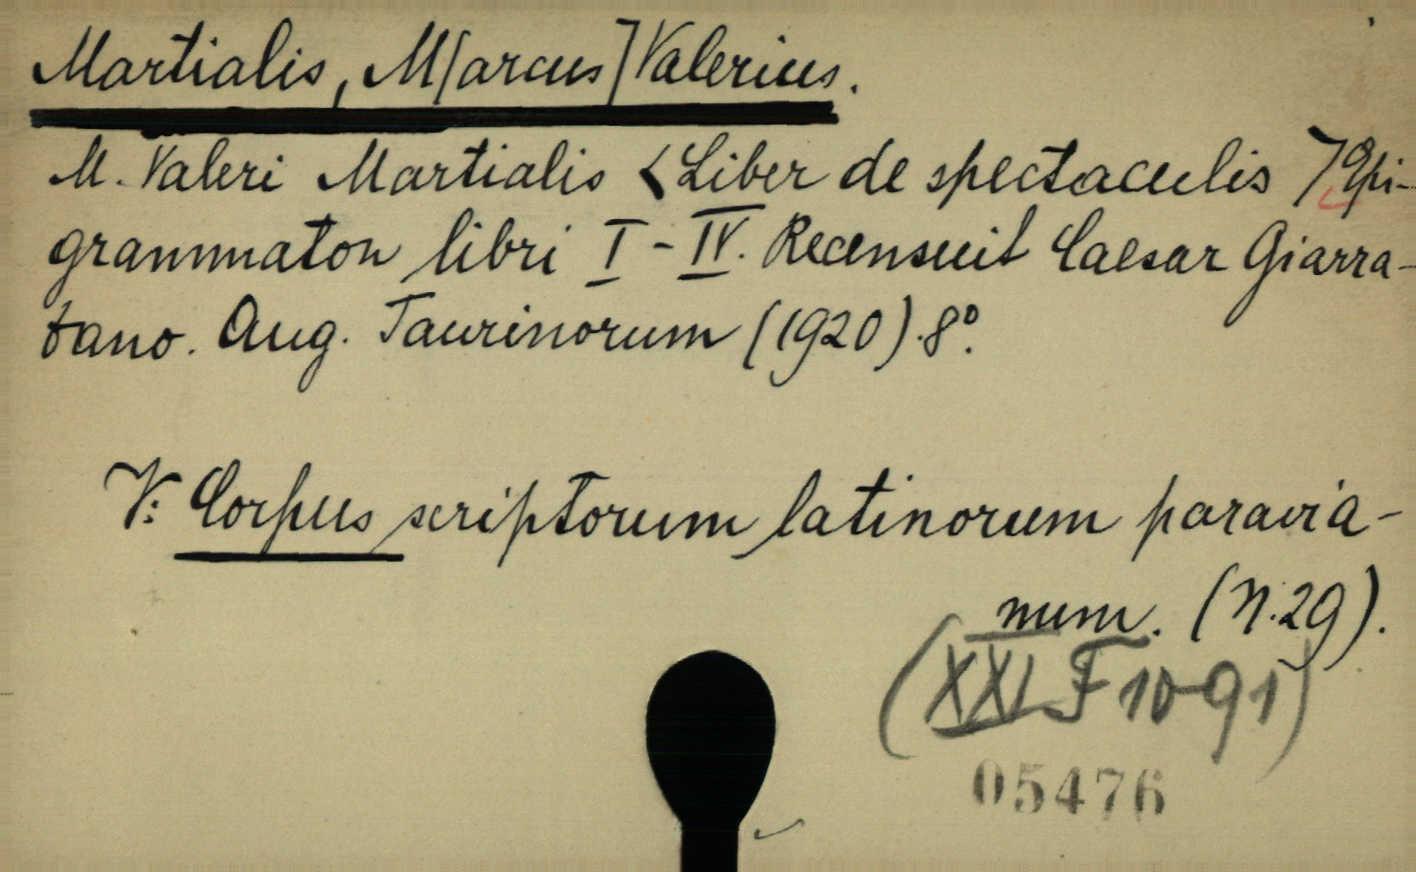 Martialis, M[arcus] Valerius.
M. Valeri Martialis <Liber de spectaculis > Epi-
grammaton libri I - IV. Recensuit Caesar Giarra-
tano. Aug. Taurinorum (1920). 8º.
V: Corpus scriptorum latinorum paravia-
num. (N. 29).
(XXI F 10-91)
05476